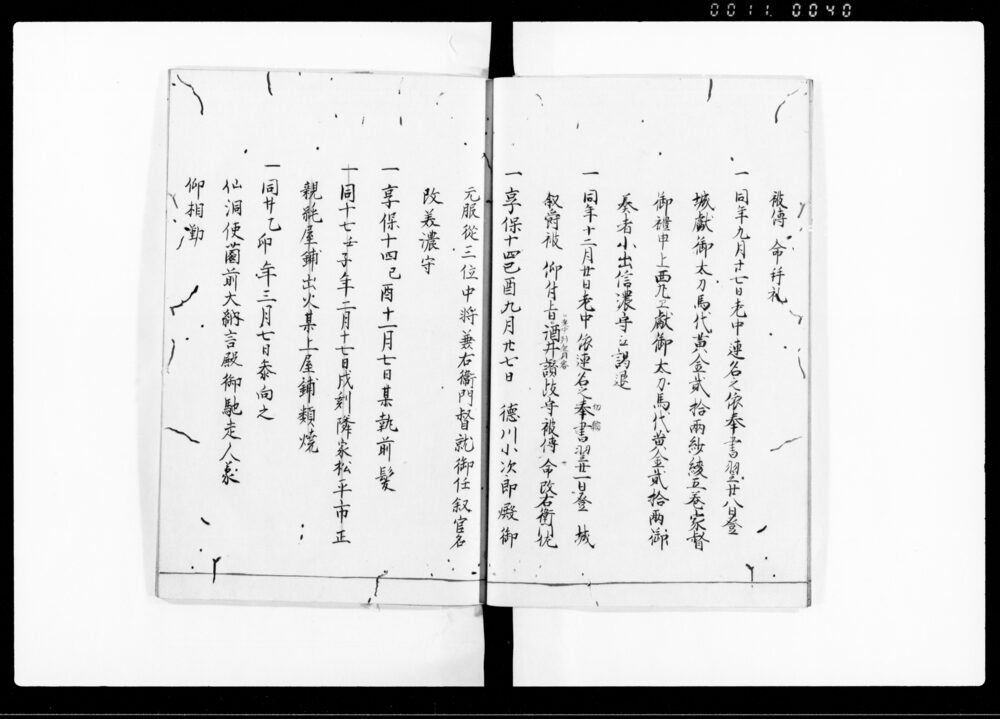 0011. 0040
被傳 命拜礼
一同年九月廿七日老中連名之依奉書翌廿八日登
城獻御太刀馬代黄金貳拾兩紗綾五巻家督
御禮申上西丸江獻御太刀馬代黄金貳拾兩御
奏者小出信濃守江謁退
一同年十二月廿日老中依連名之奉書翌廿一日登 城
叙爵被 仰付旨酒井讃岐守被傳 命改右衛佐
一享保十四己酉九月廿七日 德川小次郎殿御
元服從三位中将兼右衛門督就御任叙官名
改美濃守
一享保十四己酉十一月七日某執前髪
一同十七壬子年二月十七日戌刻隣家松平市正
親純屋鋪出火某上屋鋪類焼
一同廿乙卯年三月七日参向之
仙洞使園前大納言殿御馳走人義
仰相勤